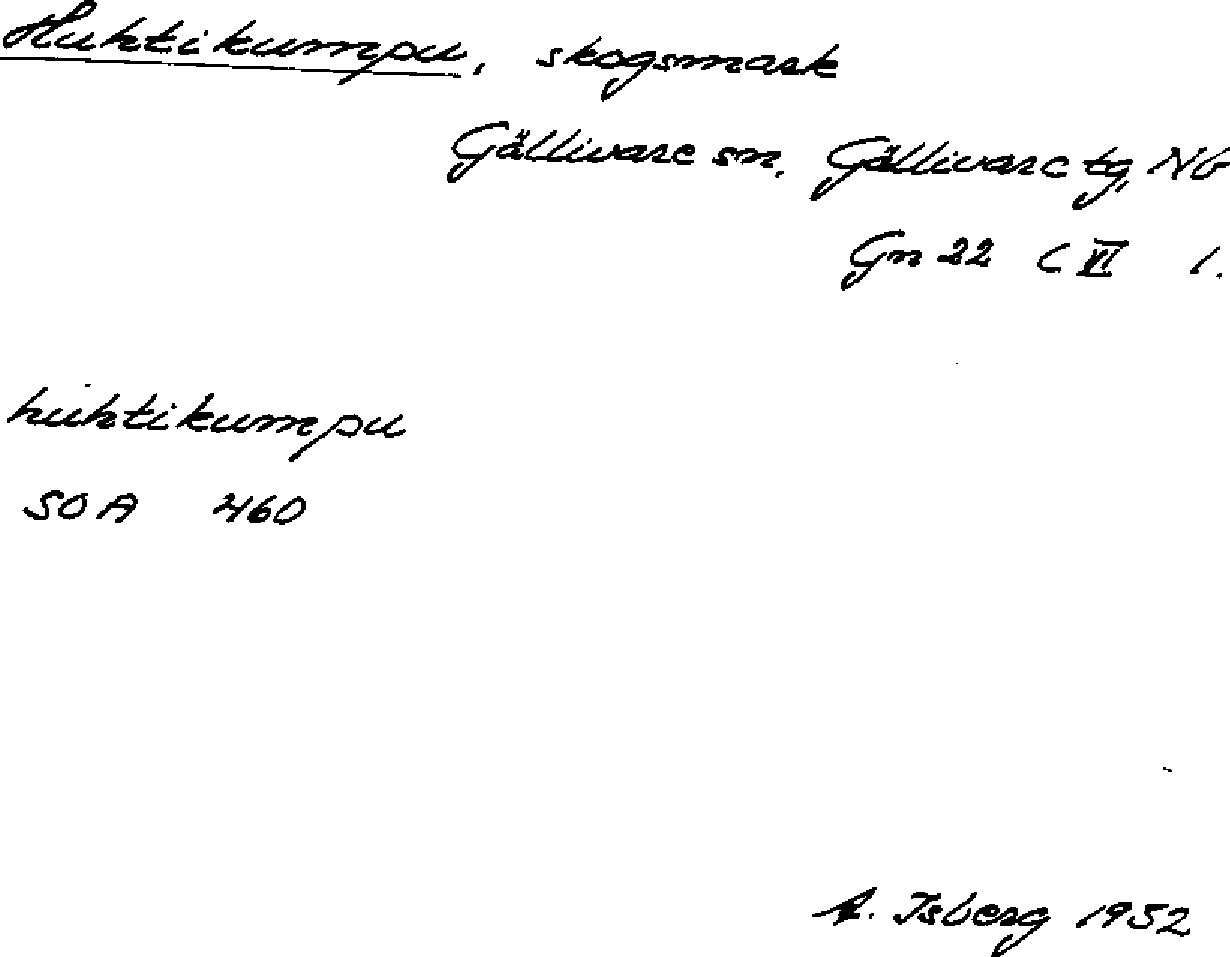 Huhtikumpu, skogsmark
Gällivare sn, Gällivare tg, Nb
Gn 22 C VI 1.
huhtikumpu
SOA 460
A. Isberg 1952